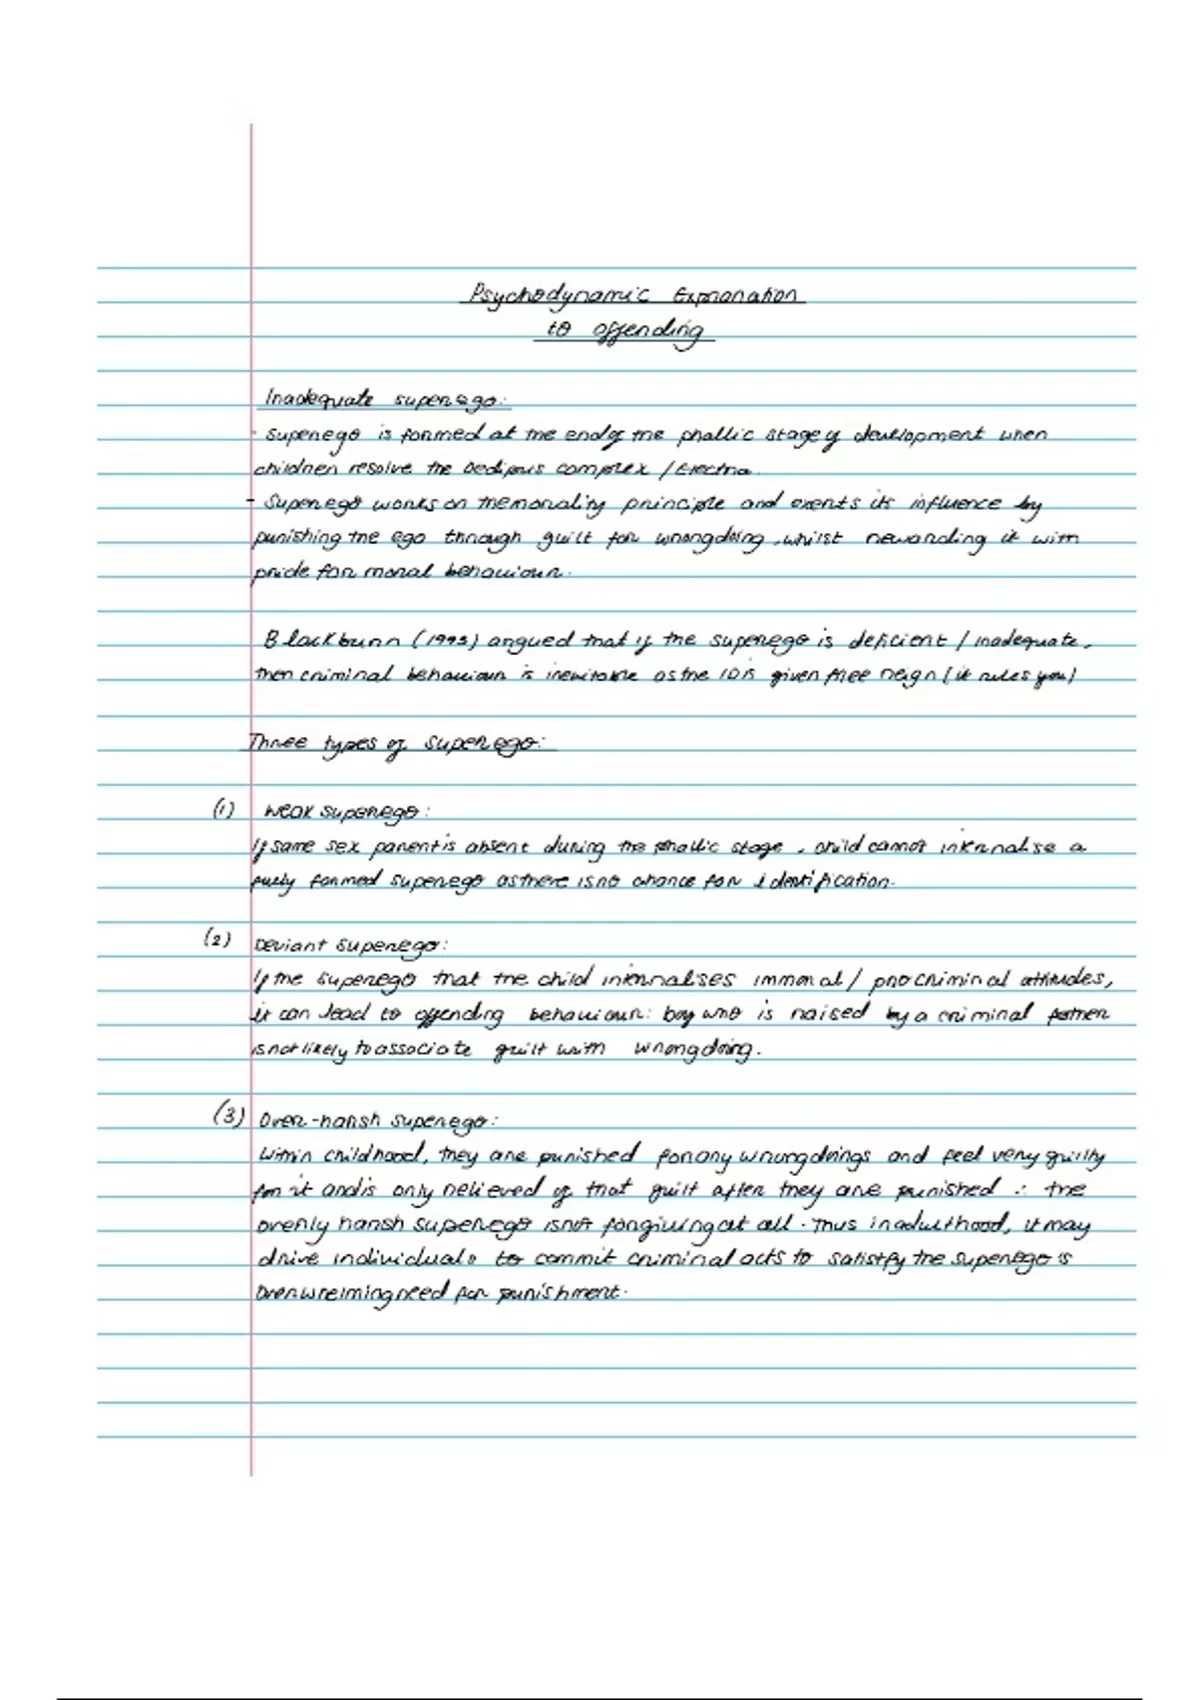 Psychodynamic Explanation
to offending
Inadequate superego:
- Superego is formed at the end of the phallic stage of development when
children resolve the Oedipus complex / Electra.
- Superego works on the morality principle and exerts its influence by
punishing the ego through guilt for wrongdoing, whilst rewarding it with
pride for moral behaviour.
Blackburn (1993) argued that if the superego is deficient / inadequate,
then criminal behaviour is inevitable as the ID is given free reign (it rules you)
Three types of superego:
(1) Weak superego:
If same sex parent is absent during the phallic stage, child cannot internalise a
fully formed superego as there is no chance for identification.
(2) Deviant superego:
If the superego that the child internalises immoral / procriminal attitudes,
it can lead to offending behaviour: boy who is raised by a criminal father
is not likely to associate guilt with wrongdoing.
(3) Over-harsh superego:
Within childhood, they are punished for any wrongdoings and feel very guilty
for it and is only relieved of that guilt after they are punished ∴ the
overly harsh superego isnt forgiving at all. Thus in adulthood, it may
drive individuals to commit criminal acts to satistfy the superego's
overwhelming need for punishment.